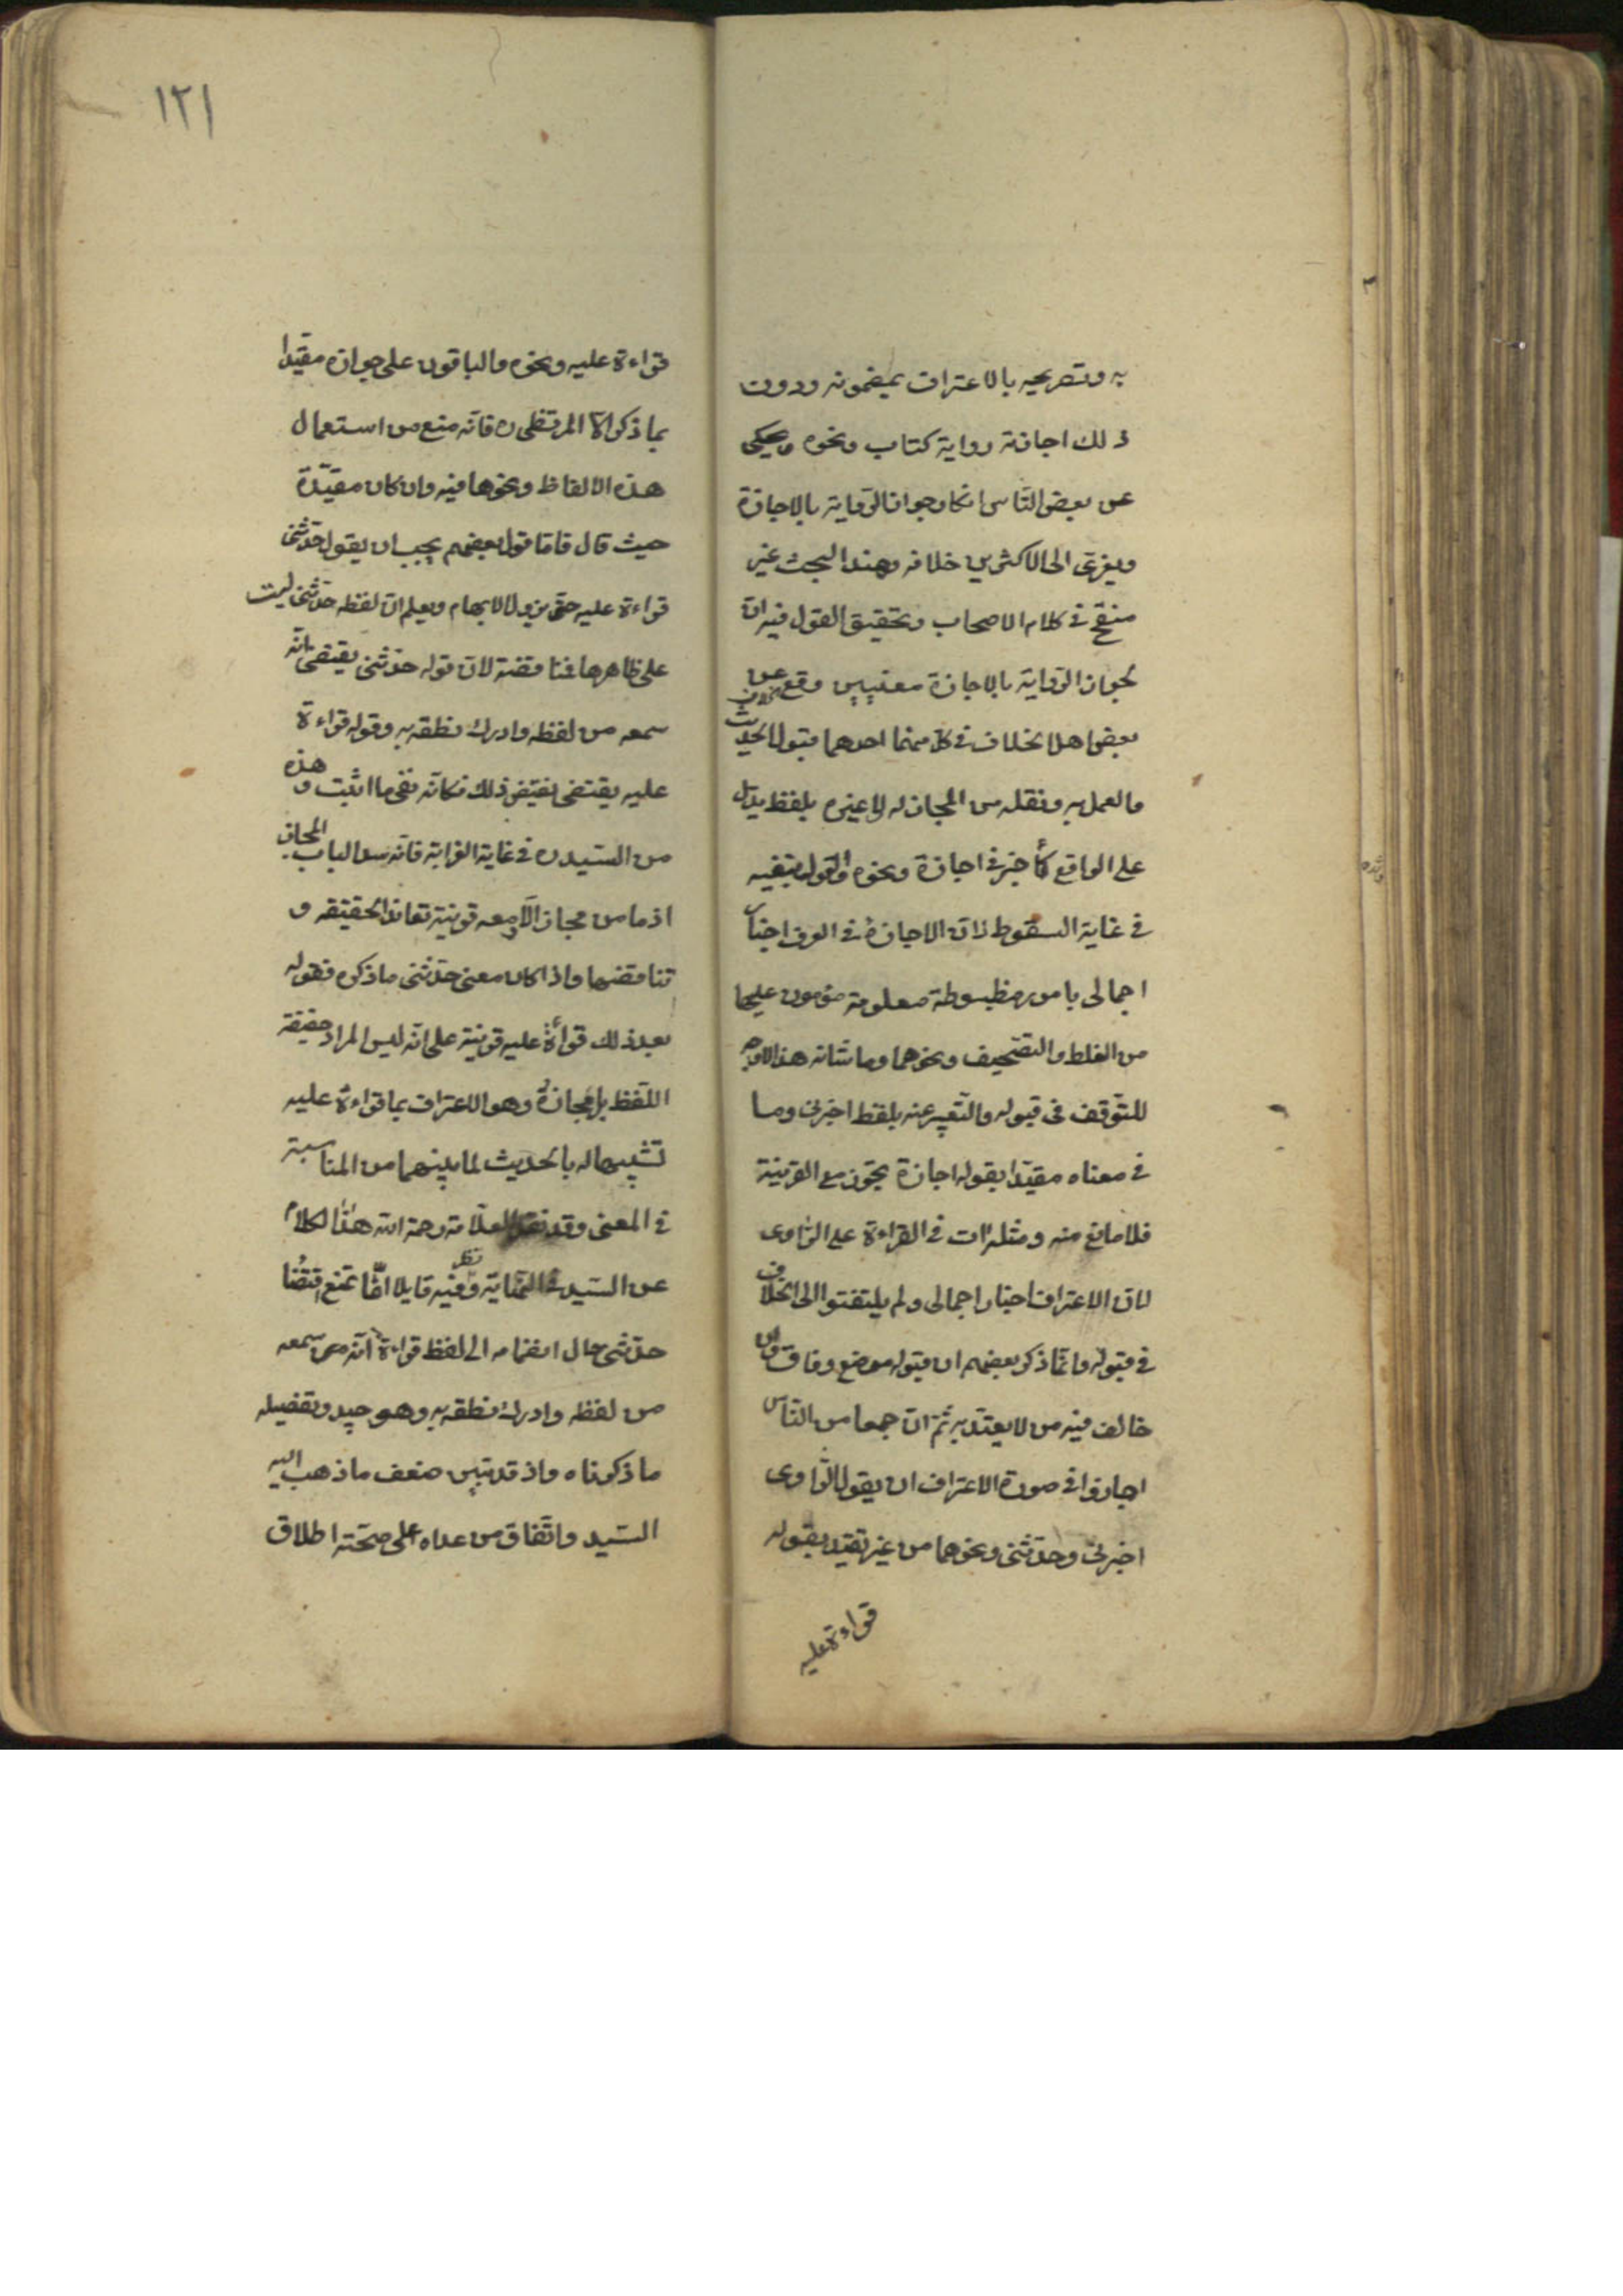 به وتصريحه بالاعتراف بمضمونه ودون
ذلك اجازته رواية كتاب ونحوه ويحكى
عن بعض الناس انكار جواز الرواية بالاجازة
ويعزى الى الاكثرين خلافه وهذا البحث غير
منقح في كلام الاصحاب وتحقيق القول فيه ان
لجواز الرواية بالاجازة معنيين وقع عن
بعض اهل الخلاف في كل منهما احدهما قبول الحديث
والعمل به ونقله من المجاز له الى غيره بلفظ يدل
على الواقع كأخبرني اجازة ونحوه والقول بنفيه
في غاية السقوط لان الاجازة في العرف اخبار
اجمالى بامور مضبوطة معلومة مأمون عليها
من الغلط والتصحيف ونحوهما وما شانه هذا لا وجه
للتوقف في قبوله والتعبير عنه بلفظ اخبرني وما
في معناه مقيدا بقوله اجازة تجوز مع القرينة
فلا مانع منه ومثله آت في القراءة على الراوى
لان الاعتراف اخبار اجمالى ولم يلتفتوا الى الخلاف
في قبوله وانما ذكر بعضهم ان قبوله موضع وفاق وان
خالف فيه من لا يعتد به ثم ان جمعا من الناس
اجازوا في صورة الاعتراف ان يقول الراوى
اخبرني وحدثني ونحوهما من غير تقييد بقوله
قراءة عليه
١٢١
قراءة عليه ونحوه والباقون على جوازه مقيدا
بما ذكر الا المرتضى ره فانه منع من استعمال
هذه الالفاظ ونحوها فيه وان كان مقيدة
حيث قال فاما قول بعضهم يجب ان يقول حدثني
قراءة عليه حتى يزول الابهام ويعلم ان لفظه حدثني ليست
على ظاهرها فمناقضة لان قوله حدثني يقتضى انه
سمعه من لفظه وادرك نطقه به وقوله قراءة
عليه يقتضى نقيض ذلك فكانه نفى ما اثبت وهذه
من السيد ره في غاية الغرابة فانه سد الباب المجاز
اذ ما من مجاز الا ومعه قرينة تعاند الحقيقة و
تناقضها واذا كان معنى حدثني ما ذكره فقوله
بعد ذلك قراءة عليه قرينة على انه ليس المراد حقيقة
اللفظ بل مجازه وهو الاعتراف بما قراءة عليه
تشبيها له بالحديث لما بينهما من المناسبة
في المعنى وقد نقل العلامة رحمة الله هذا الكلام
عن السيد في النهاية وفيه نظر قايلا انا نمنع اقتضا
حدثني حال انضمامه الى لفظ قراءة انه من سمعه
من لفظه وادرك نطقه به وهو جيد وتفصيله
ما ذكرناه واذ قد تبين ضعف ما ذهب اليه
السيد واتفاق من عداه على صحته اطلاق